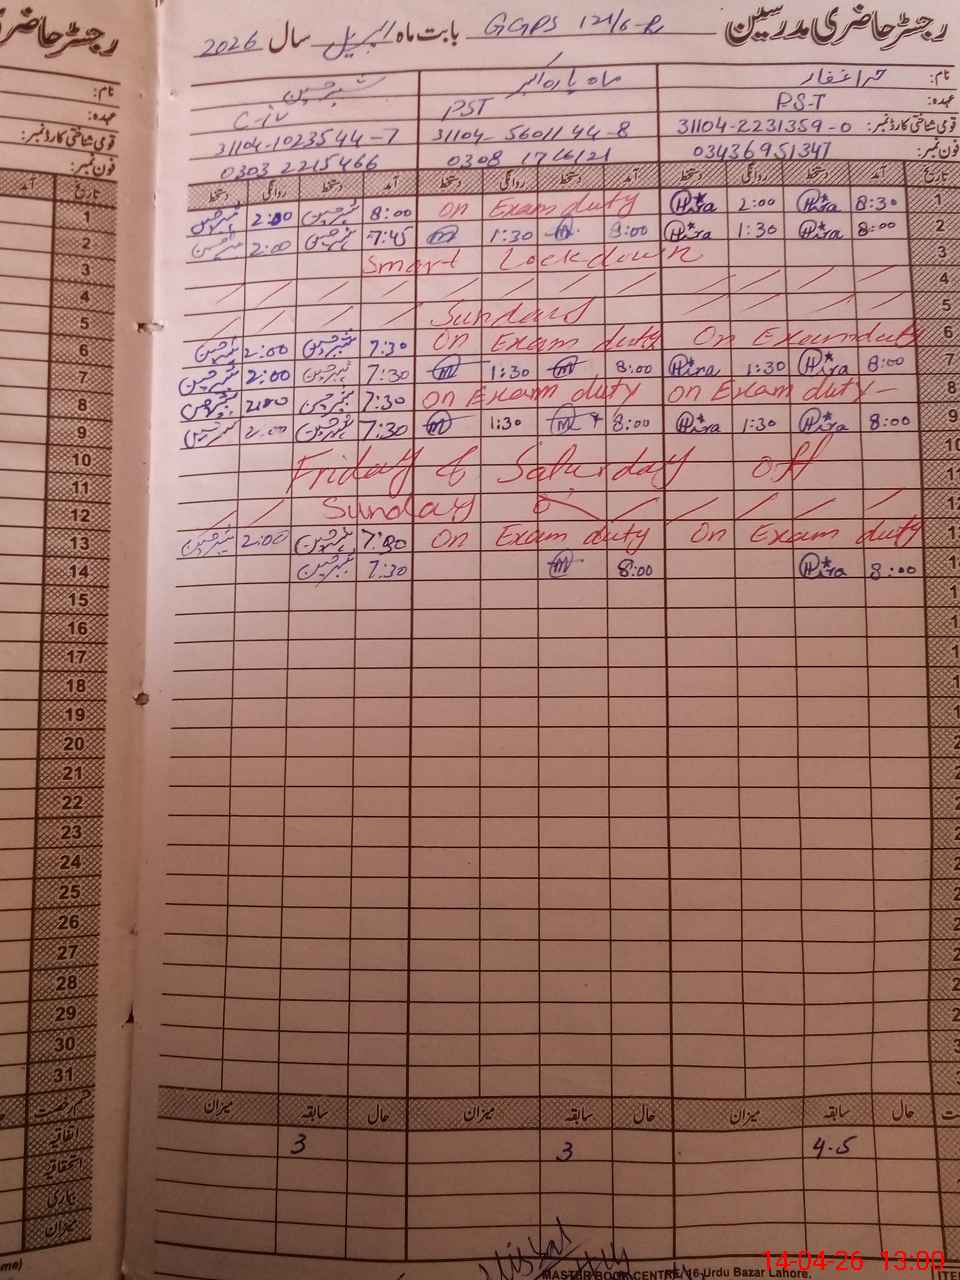 رجسٹر حاضری مدرسین GGPS 121/6-R بابت ماہ اپریل سال 2026
نام: حرا غفار ماہ پارہ اکبر شبیر حسین
عہدہ: P.S.T PST
قومی شناختی کارڈ نمبر: 31104-2231359-0 31104-5601144-8 31104-1023544-7
فون نمبر: 03436951347 0308 1716121 0303 2215466
تاریخ آمد دستخط روانگی دستخط آمد دستخط روانگی دستخط آمد دستخط روانگی دستخط
1 8:30 Hira 2:00 Hira On Exam duty 8:00 شبیر حسین 2:00 شبیر حسین
2 8:00 Hira 1:30 Hira 8:00 m 1:30 m 7:45 شبیر حسین 2:00 شبیر حسین
3 Smart Lockdown
4
5 Sunday
6 On Exam duty On Exam duty 7:30 شبیر حسین 2:00 شبیر حسین
7 8:00 Hira 1:30 Hira 8:00 m 1:30 m 7:30 شبیر حسین 2:00 شبیر حسین
8 on Exam duty on Exam duty 7:30 شبیر حسین 2:00 شبیر حسین
9 8:00 Hira 1:30 Hira 8:00 m 1:30 m 7:30 شبیر حسین 2:00 شبیر حسین
10
11 Friday & Saturday off
12 Sunday
13 On Exam duty On Exam duty 7:30 شبیر حسین 2:00 شبیر حسین
14 8:00 Hira 8:00 m 7:30 شبیر حسین
15
16
17
18
19
20
21
22
23
24
25
26
27
28
29
30
31
قسم رخصت حال سابقہ میزان حال سابقہ میزان حال سابقہ میزان
اتفاقیہ 4.5 3 3
استحقاقیہ
بیماری
میزان
MASTER BOOK CENTRE, 16-Urdu Bazar Lahore.
14-04-26 13:00